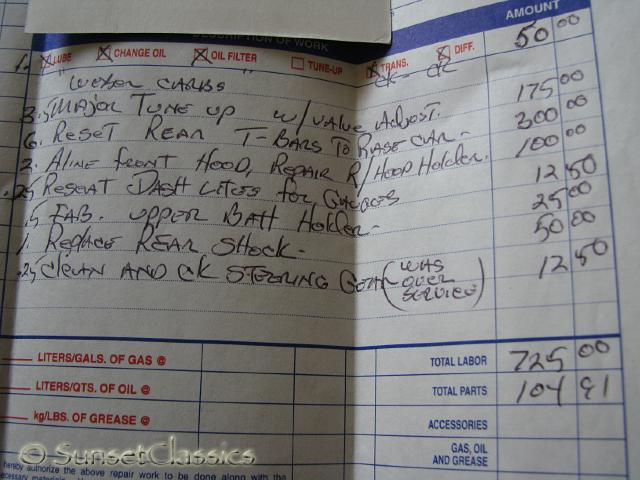 DESCRIPTION OF WORK AMOUNT
1. LUBE CHANGE OIL OIL FILTER TUNE-UP TRANS. DIFF. 50 00
CK - OK
"WEBER CARBS"
3.5 MAJOR TUNE UP W/ VALVE ADJUST. 175 00
6. RESET REAR T-BARS TO RASE CAR - 300 00
2. ALINE FRONT HOOD, REPAIR R/HOOD HOLDER. 100 00
.25 RESEAT DASH LITES FOR GAUGES 12 50
.5 FAB. UPPER BATT HOLDER - 25 00
1. REPLACE REAR SHOCK - 50 00
.25 CLEAN AND CK STEERING GEAR (WAS OVER SERVICE) 12 50
LITERS/GALS. OF GAS @ TOTAL LABOR 725 00
LITERS/QTS. OF OIL @ TOTAL PARTS 104 91
kg/LBS. OF GREASE @ ACCESSORIES
GAS, OIL AND GREASE
© SunsetClassics
hereby authorize the above repair work to be done along with the
necessary materials.